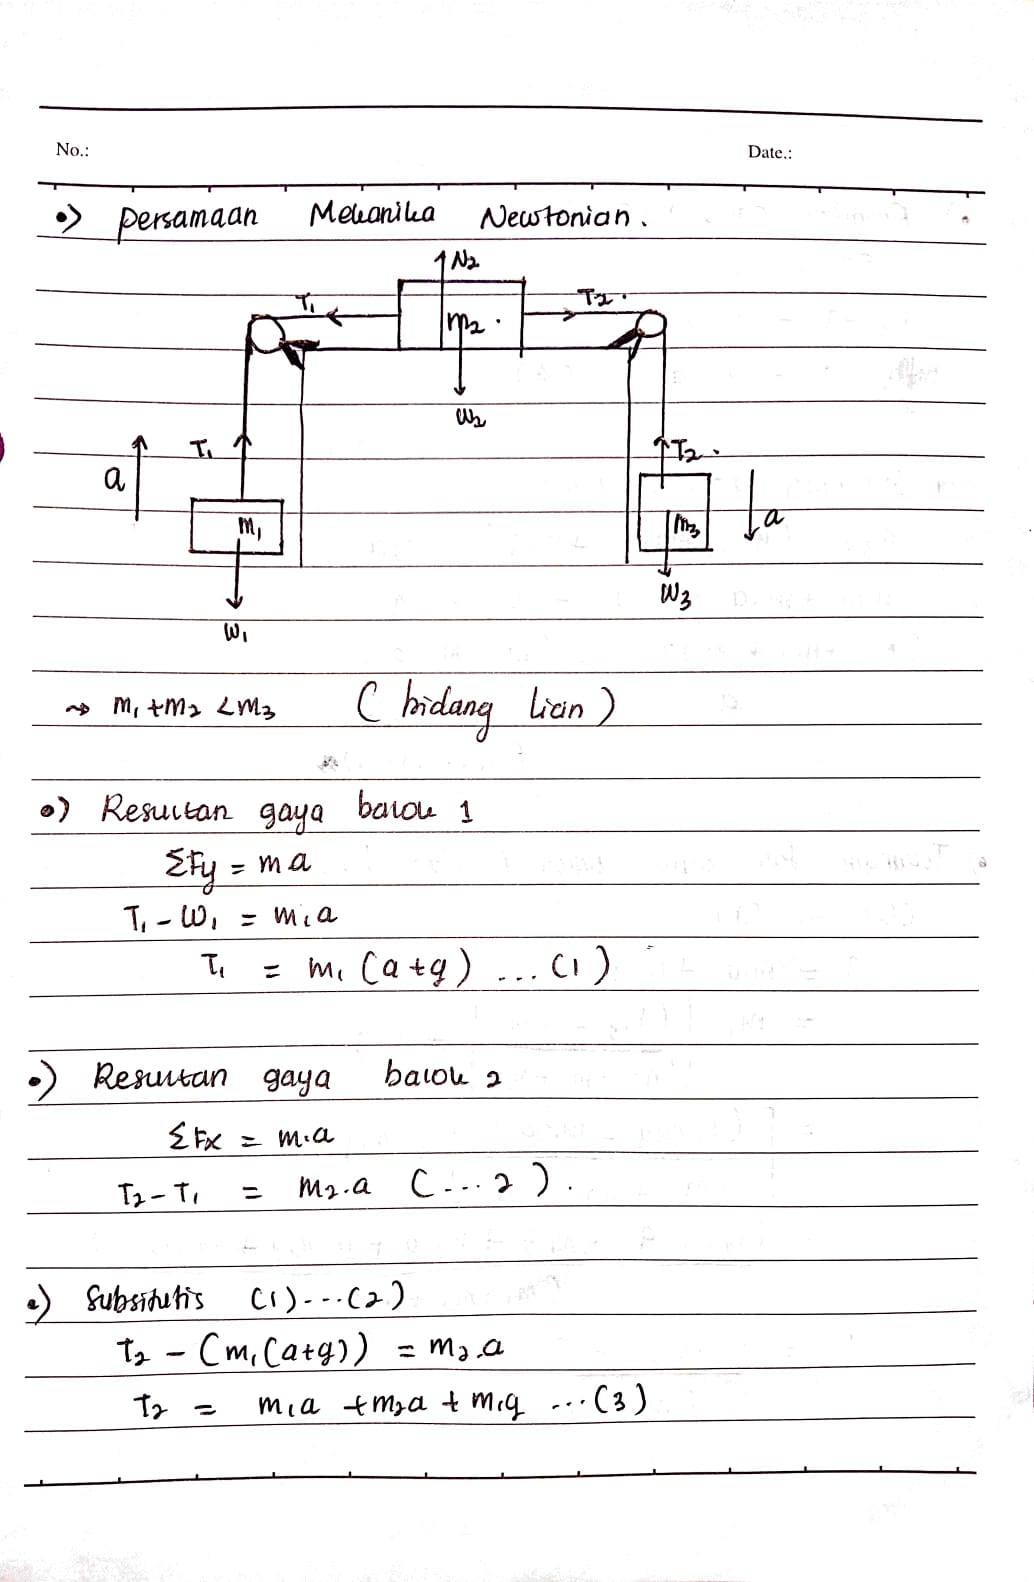 No.: Date.:
•) Persamaan Mekanika Newtonian.
N2
T1 m2. T2.
W2
a T1 T2. a
m1 m3
W3
W1
⇝ m1+m2 <m3 ( bidang licin )
•) Resultan gaya balok 1
ΣFy = ma
T1 - W1 = m1a
T1 = m1 (a+g) ... (1)
•) Resultan gaya balok 2
ΣFx = m.a
T2-T1 = m2.a (...2).
•) (1)...(2)
T2 - (m1(a+g)) = m2.a
T2 = m1a +m2a + m1g ...(3)